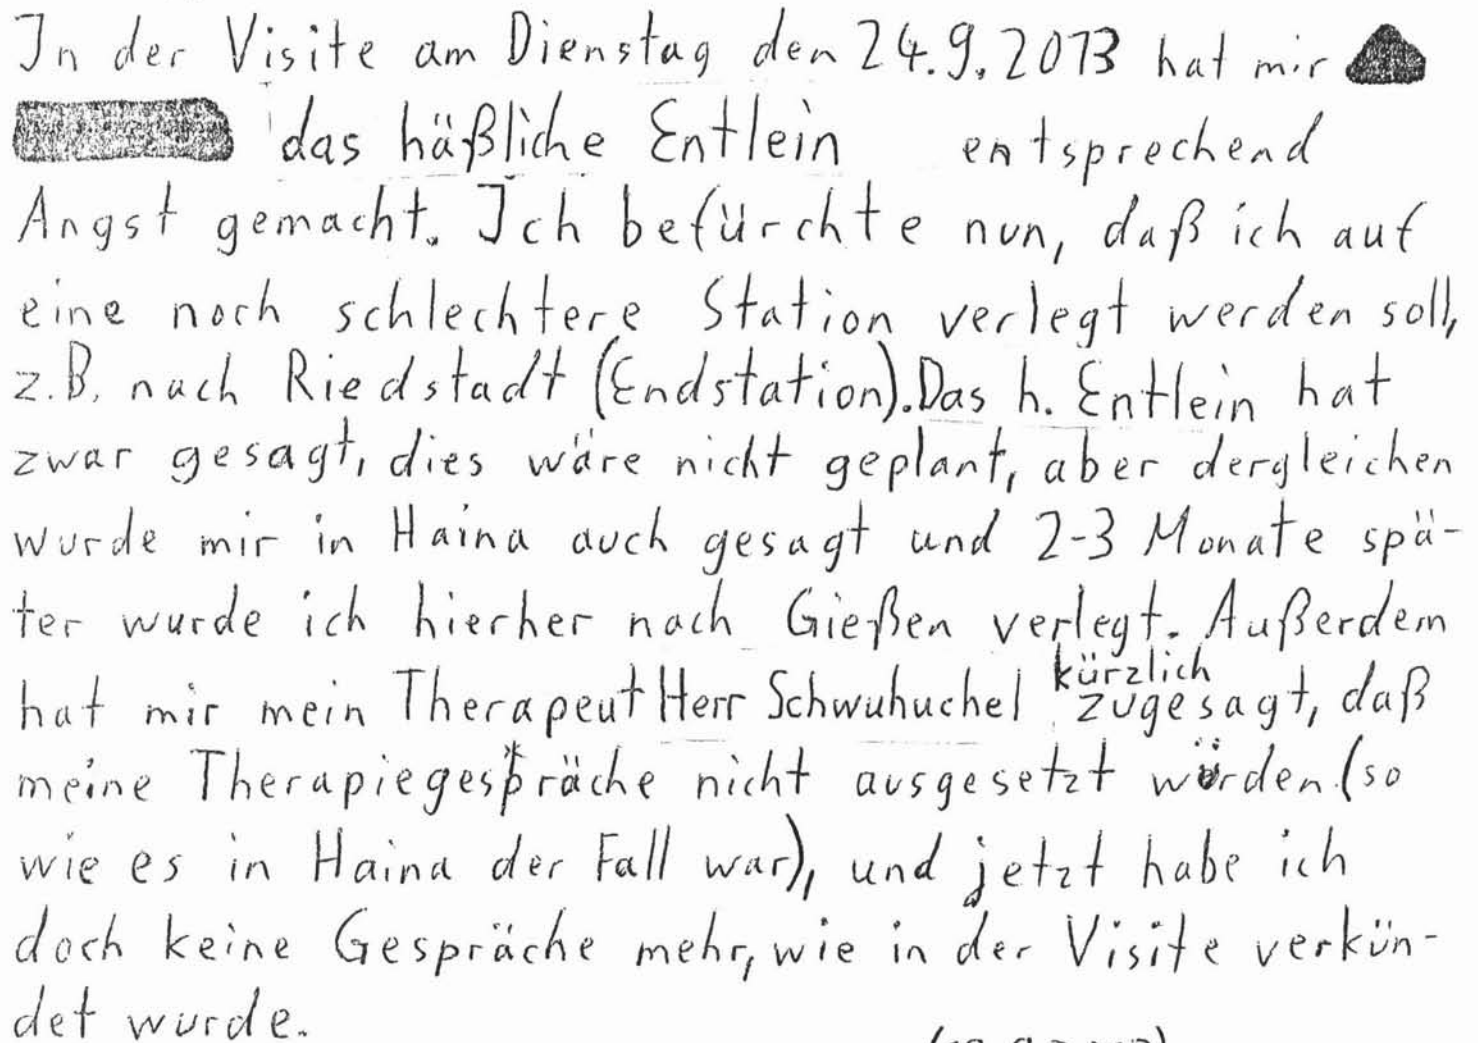 In der Visite am Dienstag den 24.9.2013 hat mir
das häßliche Entlein entsprechend
Angst gemacht. Ich befürchte nun, daß ich auf
eine noch schlechtere Station verlegt werden soll,
z.B. nach Riedstadt (Endstation). Das h. Entlein hat
zwar gesagt, dies wäre nicht geplant, aber dergleichen
wurde mir in Haina auch gesagt und 2-3 Monate spä-
ter wurde ich hierher nach Gießen verlegt. Außerdem
hat mir mein Therapeut Herr Schwuhuchel kürzlich zugesagt, daß
meine Therapiegespräche nicht ausgesetzt würden (so
wie es in Haina der Fall war), und jetzt habe ich
doch keine Gespräche mehr, wie in der Visite verkün-
det wurde.